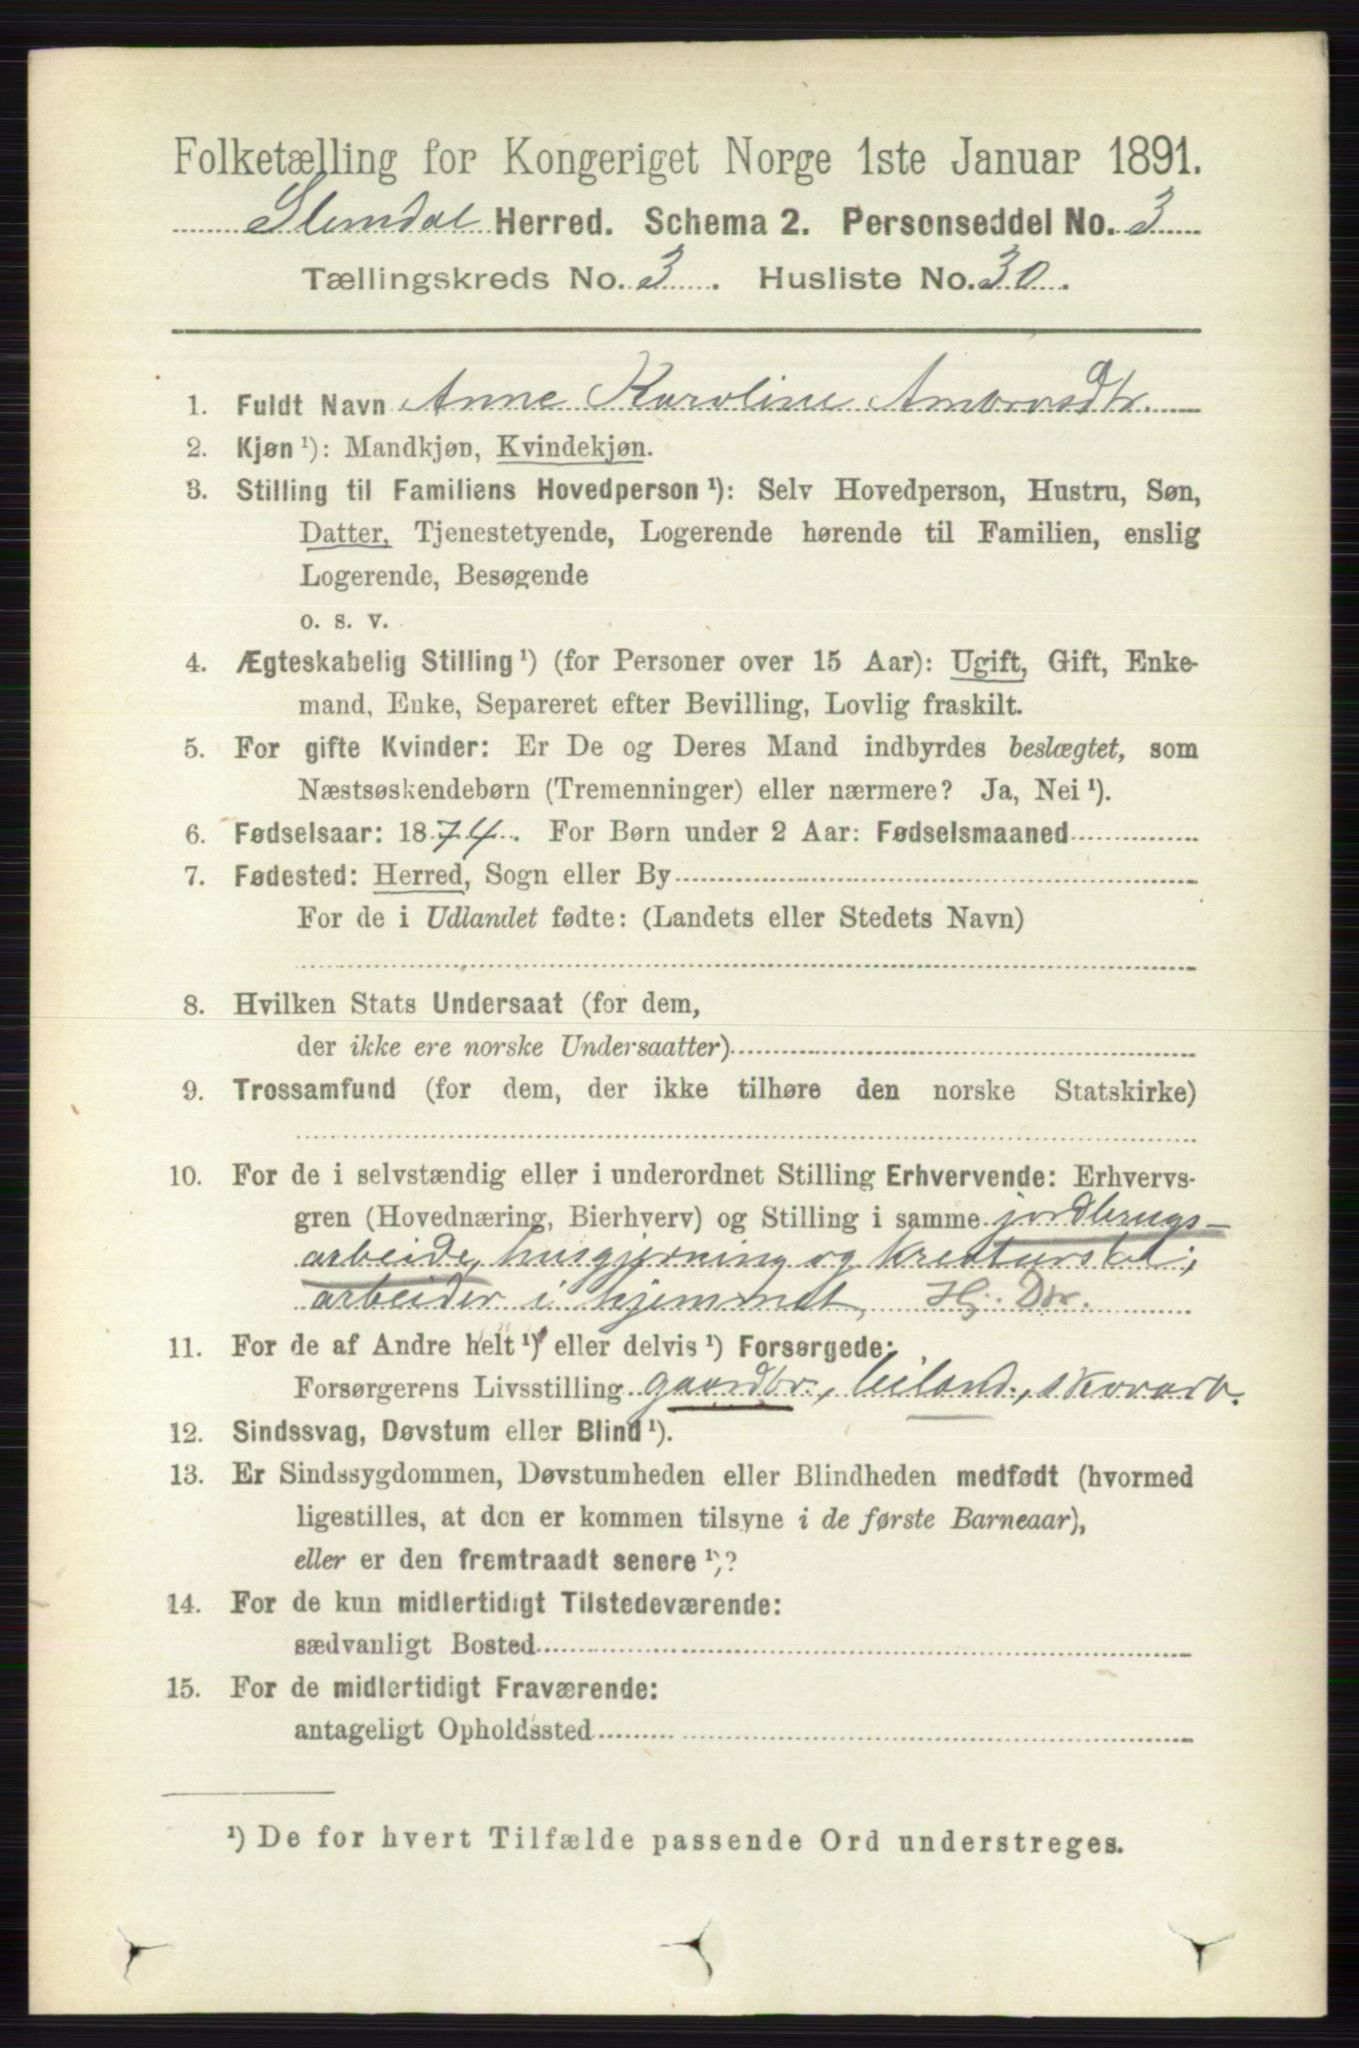 Folketælling for Kongeriget Norge 1ste Januar 1891.
Slemdal Herred. Schema 2. Personseddel No. 3
Tællingskreds No. 3. Husliste No. 30.
1. Fuldt Navn Anne Karoline Ambrosdtr.
2. Kjøn ¹): Mandkjøn, Kvindekjøn.
3. Stilling til Familiens Hovedperson ¹): Selv Hovedperson, Hustru, Søn,
Datter, Tjenestetyende, Logerende hørende til Familien, enslig
Logerende, Besøgende
o. s. v.
4. Ægteskabelig Stilling ¹) (for Personer over 15 Aar): Ugift, Gift, Enke-
mand, Enke, Separeret efter Bevilling, Lovlig fraskilt.
5. For gifte Kvinder: Er De og Deres Mand indbyrdes beslægtet, som
Næstsøskendebørn (Tremenninger) eller nærmere? Ja, Nei ¹).
6. Fødselsaar: 1874. For Børn under 2 Aar: Fødselsmaaned
7. Fødested: Herred, Sogn eller By
For de i Udlandet fødte: (Landets eller Stedets Navn)
8. Hvilken Stats Undersaat (for dem,
der ikke ere norske Undersaatter)
9. Trossamfund (for dem, der ikke tilhøre den norske Statskirke)
10. For de i selvstændig eller i underordnet Stilling Erhvervende: Erhvervs-
gren (Hovednæring, Bierhverv) og Stilling i samme jordbrugs-
arbeide, husgjerning og kreaturstel;
arbeider i hjemmet, Hj. Dtr.
11. For de af Andre helt ¹) eller delvis ¹) Forsørgede:
Forsørgerens Livsstilling gaardbr., leiland., skovarb.
12. Sindssvag, Døvstum eller Blind ¹).
13. Er Sindssygdommen, Døvstumheden eller Blindheden medfødt (hvormed
ligestilles, at den er kommen tilsyne i de første Barneaar),
eller er den fremtraadt senere ¹)?
14. For de kun midlertidigt Tilstedeværende:
sædvanligt Bosted
15. For de midlertidigt Fraværende:
antageligt Opholdssted
¹) De for hvert Tilfælde passende Ord understreges.